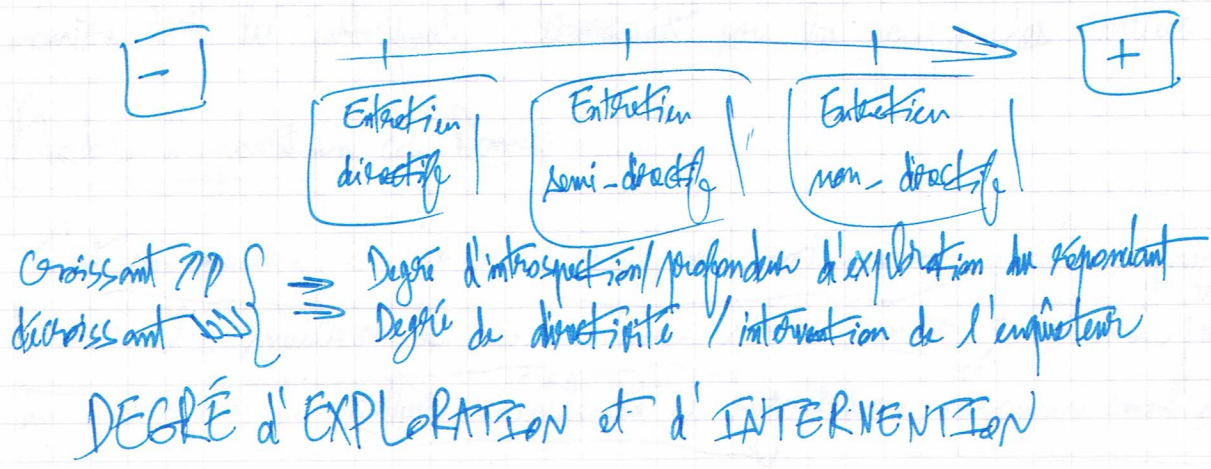 - +
Entretien directif
Entretien semi-directif
Entretien non-directif
Croissant ↗↗↗ { ⇒ Degré d'introspection/profondeur d'exploration du répondant
décroissant ↘↘↘ { ⇒ Degré de directivité / intervention de l'enquêteur
DEGRÉ d'EXPLORATION et d'INTERVENTION